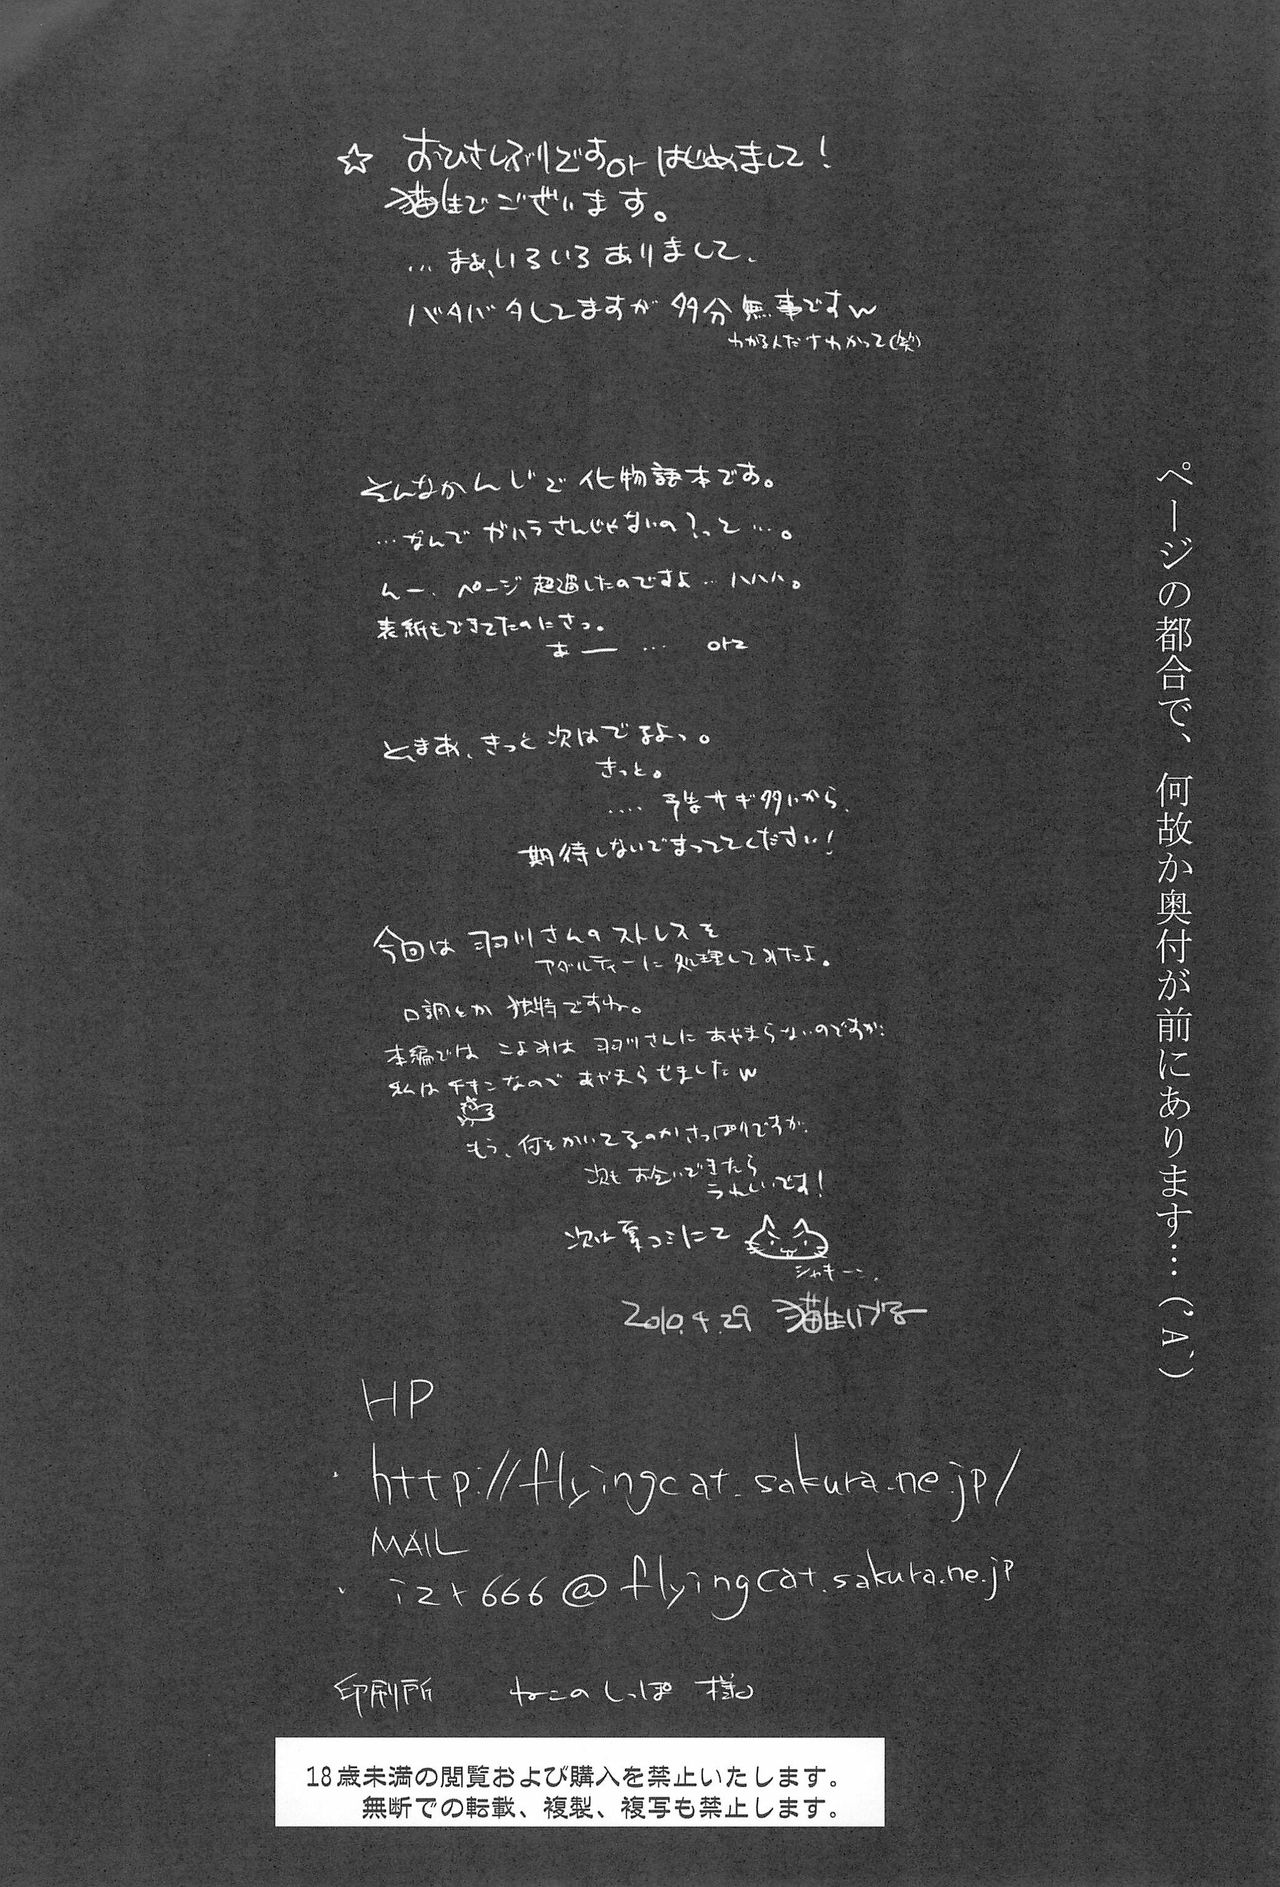 ページの都合で、何故か奥付が前にあります…('A`)
☆ おひさしぶりですorはじめまして!
猫生でございます。
…まぁ、いろいろありまして、
バタバタしてますが多分無事ですw
わかる人だけわかって(笑)
そんなかんじで化物語本です。
…なんでガハラさんじゃないの?って…。
んー、ページ超過したのですよ…ハハハ。
表紙もできてたのにさっ。
あー … orz
と、まあ、きっと次はでるよっ。
きっと。
.... 予告サギ多いから、
期待しないでまっててください!
今回は羽川さんのストレスを
アダルティーに処理してみたよ。
口調とか独特ですね。
本編ではこよみは羽川さんにあやまらないのですが、
私はチキンなのであやまらせましたw
もう、何をかいてるのかさっぱりですが、
次もお会いできたら
うれしいです!
次は夏コミにて
シャキーン。
2010.4.29 猫生いづる
HP
・http://flyingcat.sakura.ne.jp/
MAIL
・izr666@flyingcat.sakura.ne.jp
印刷所 ねこのしっぽ 様
18歳未満の閲覧および購入を禁止いたします。
無断での転載、複製、複写も禁止します。